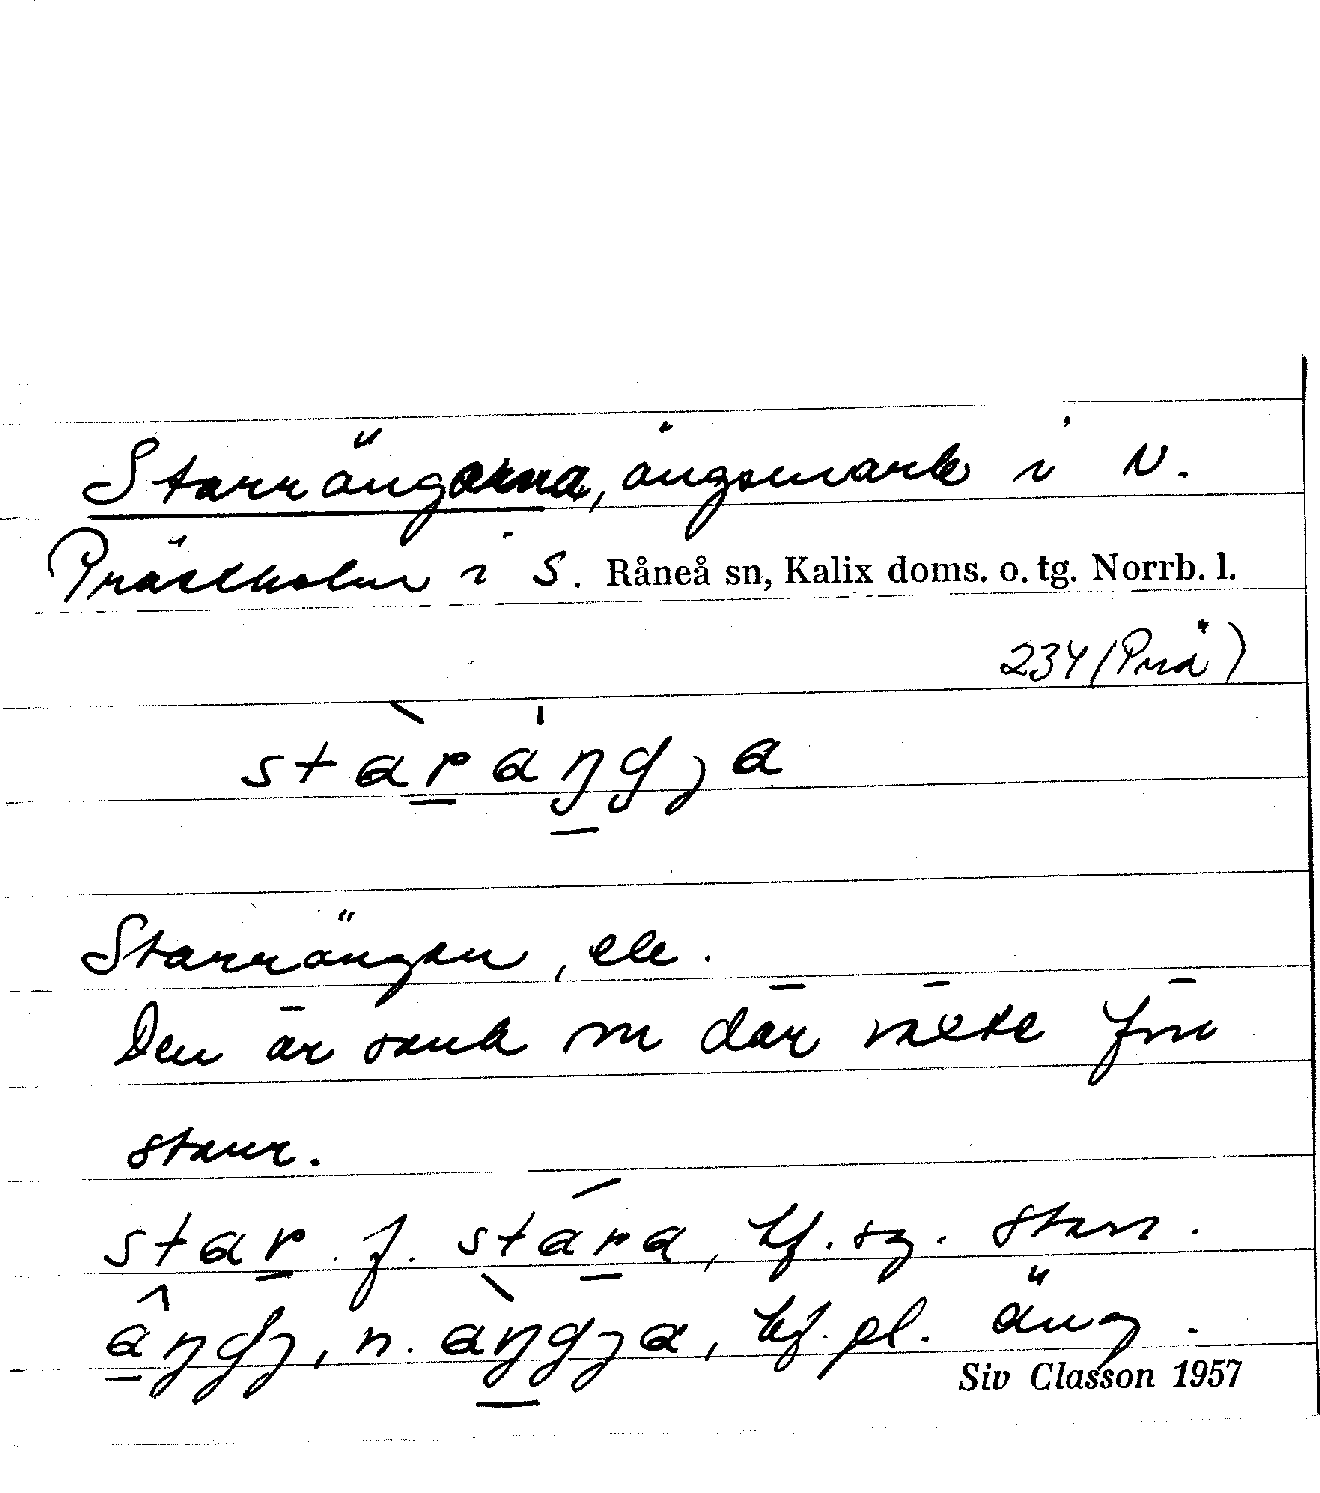 Starrängarna, ängsmark i N.
Prästholm i S. Råneå sn, Kalix doms. o. tg. Norrb. l.
234 (Prä)
stàráŋgȷa
Starrängen, ele.
Den är sank m där växte från
starr.
star f. stára, bf. sg. starr.
âŋgȷ, n. àŋgȷa, bf. pl. äng.
Siv Classon 1957